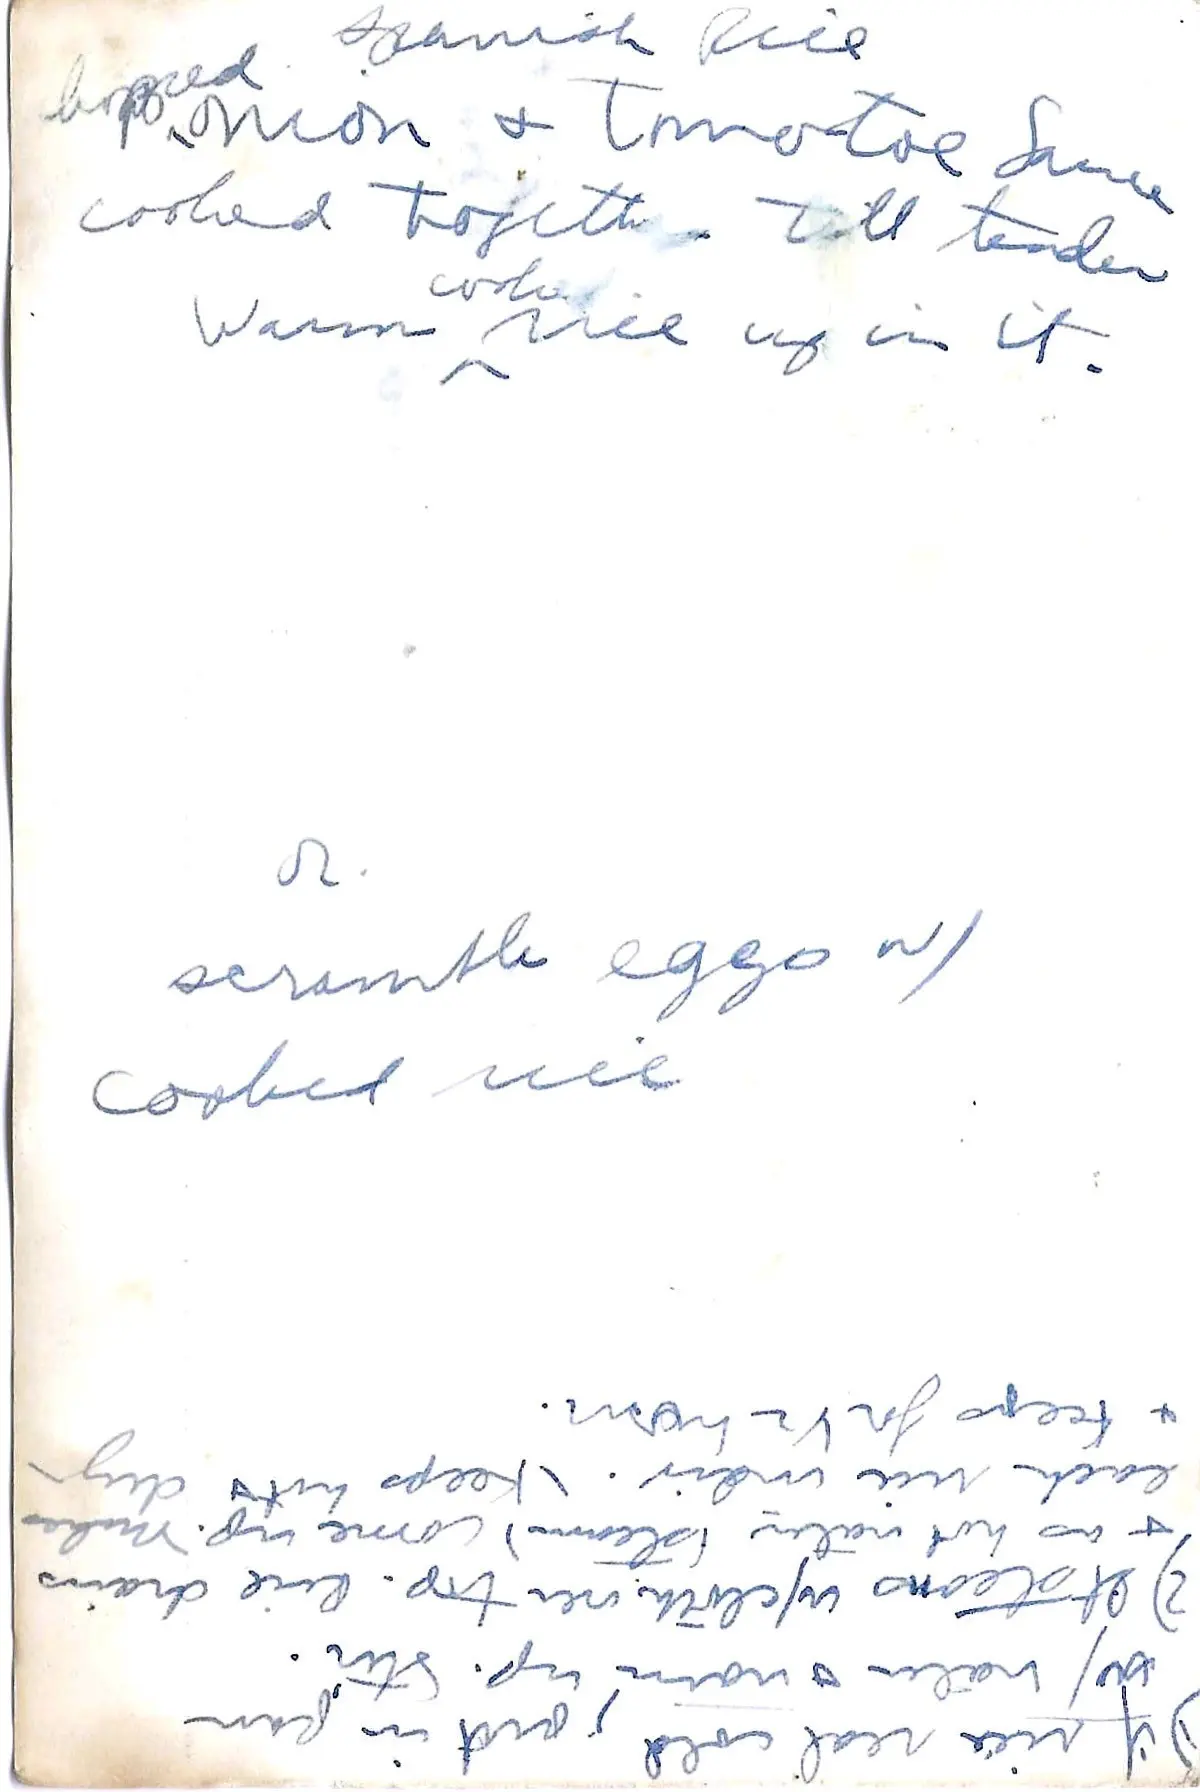 Spanish Rice
hopped
onion & Tomatoe Sauce
cooked together till tender
cooked
Warm ^ rice up in it.
or.
scramble eggs w/
cooked rice
1) if rice real cold, put in pan
w/ water & warm up. Stir.
2) It steams w/cloth over top. Rice drains
& as hot water (steam) come up. Makes
each rice indiv. (Keeps hot & dry
& keeps for ½ hour.